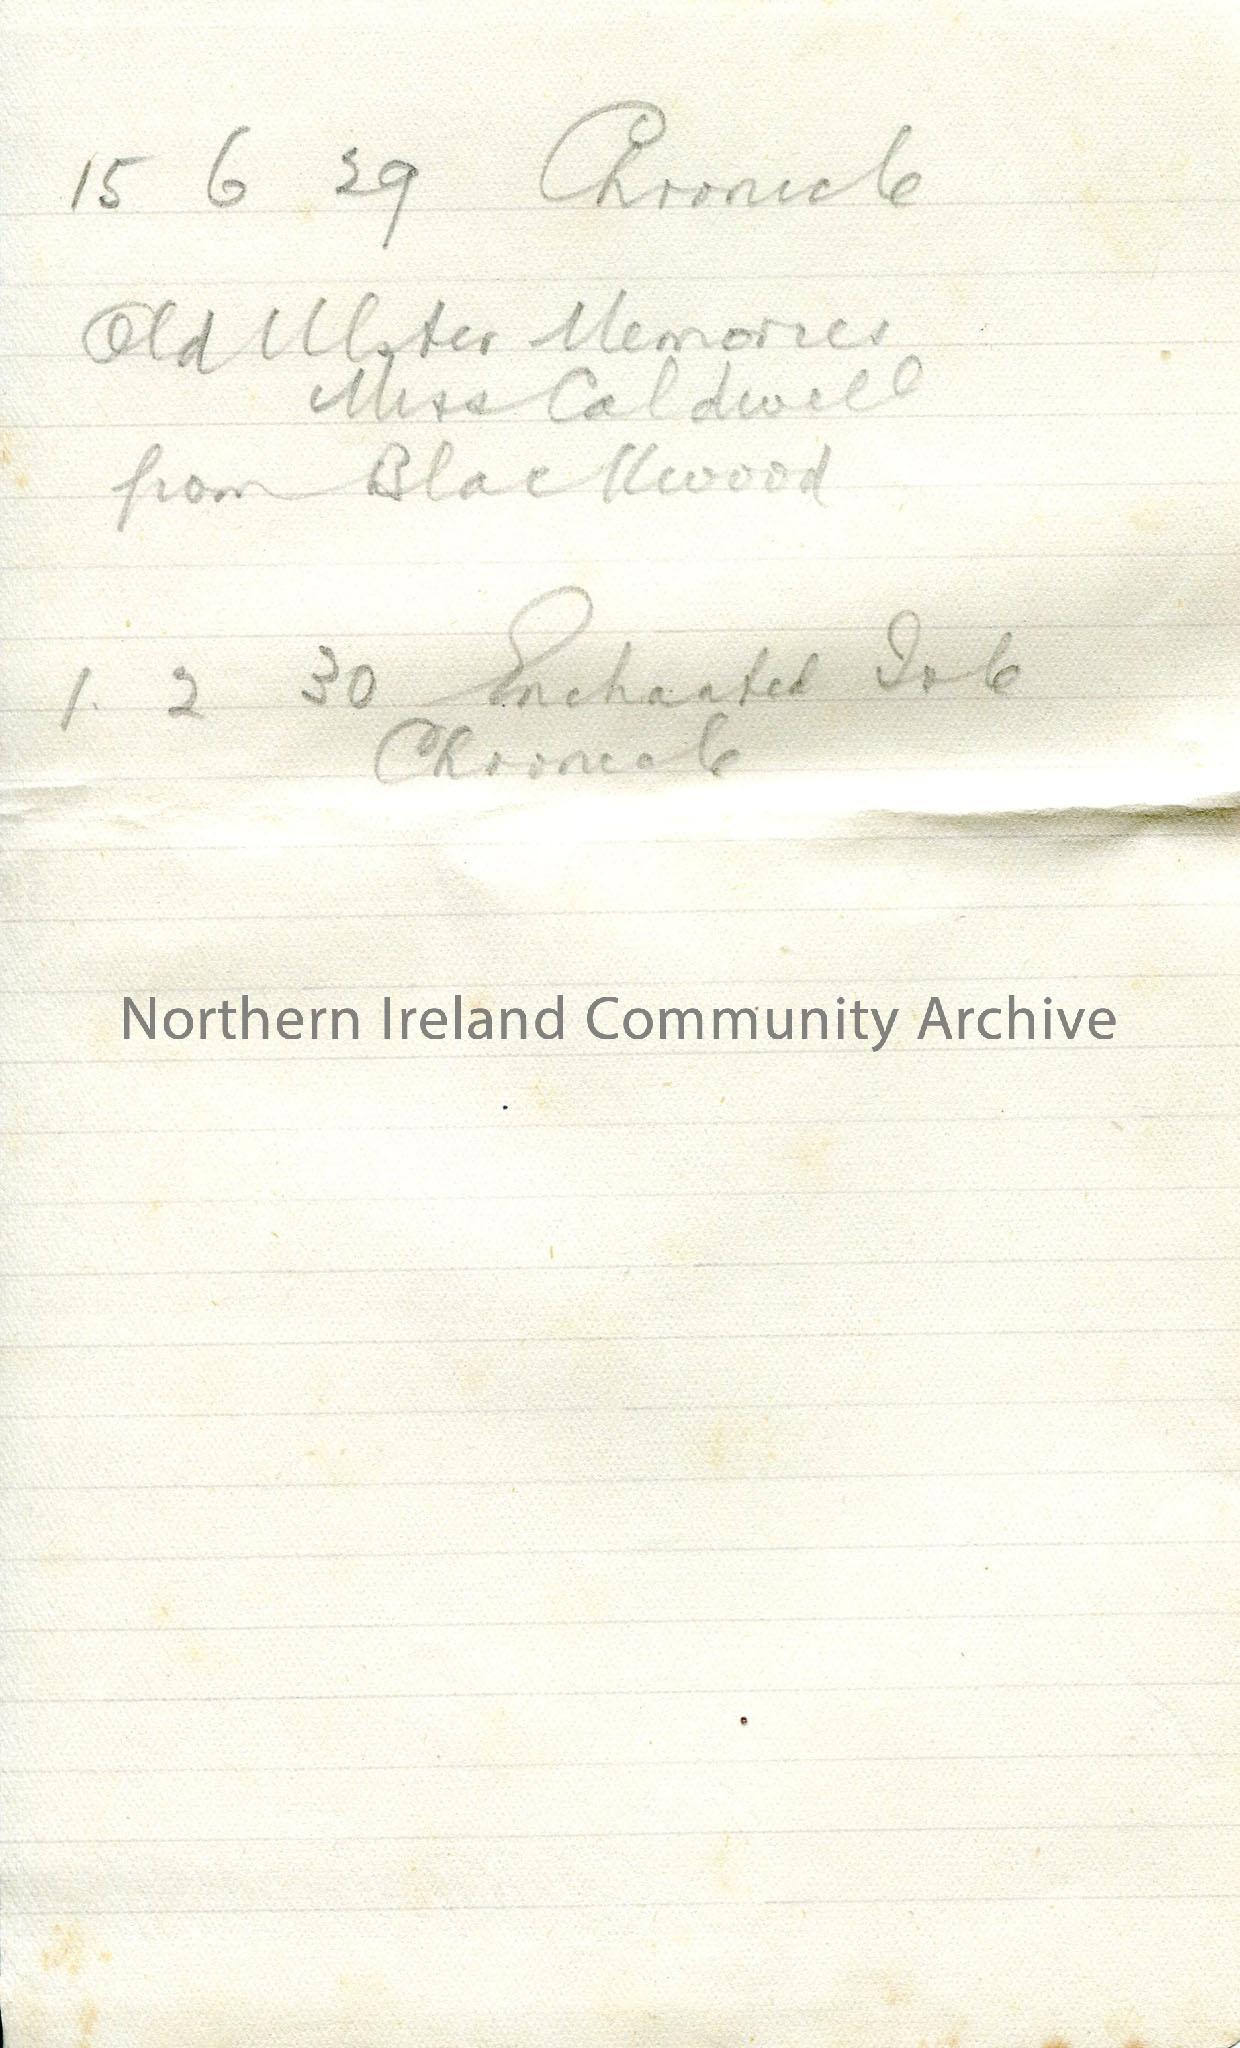 15 6 29 Chronicle
Old Ulster Memories
Miss Caldwell
from Blackwood
1. 2 30 Enchanted Isle
Chronicle
Northern Ireland Community Archive